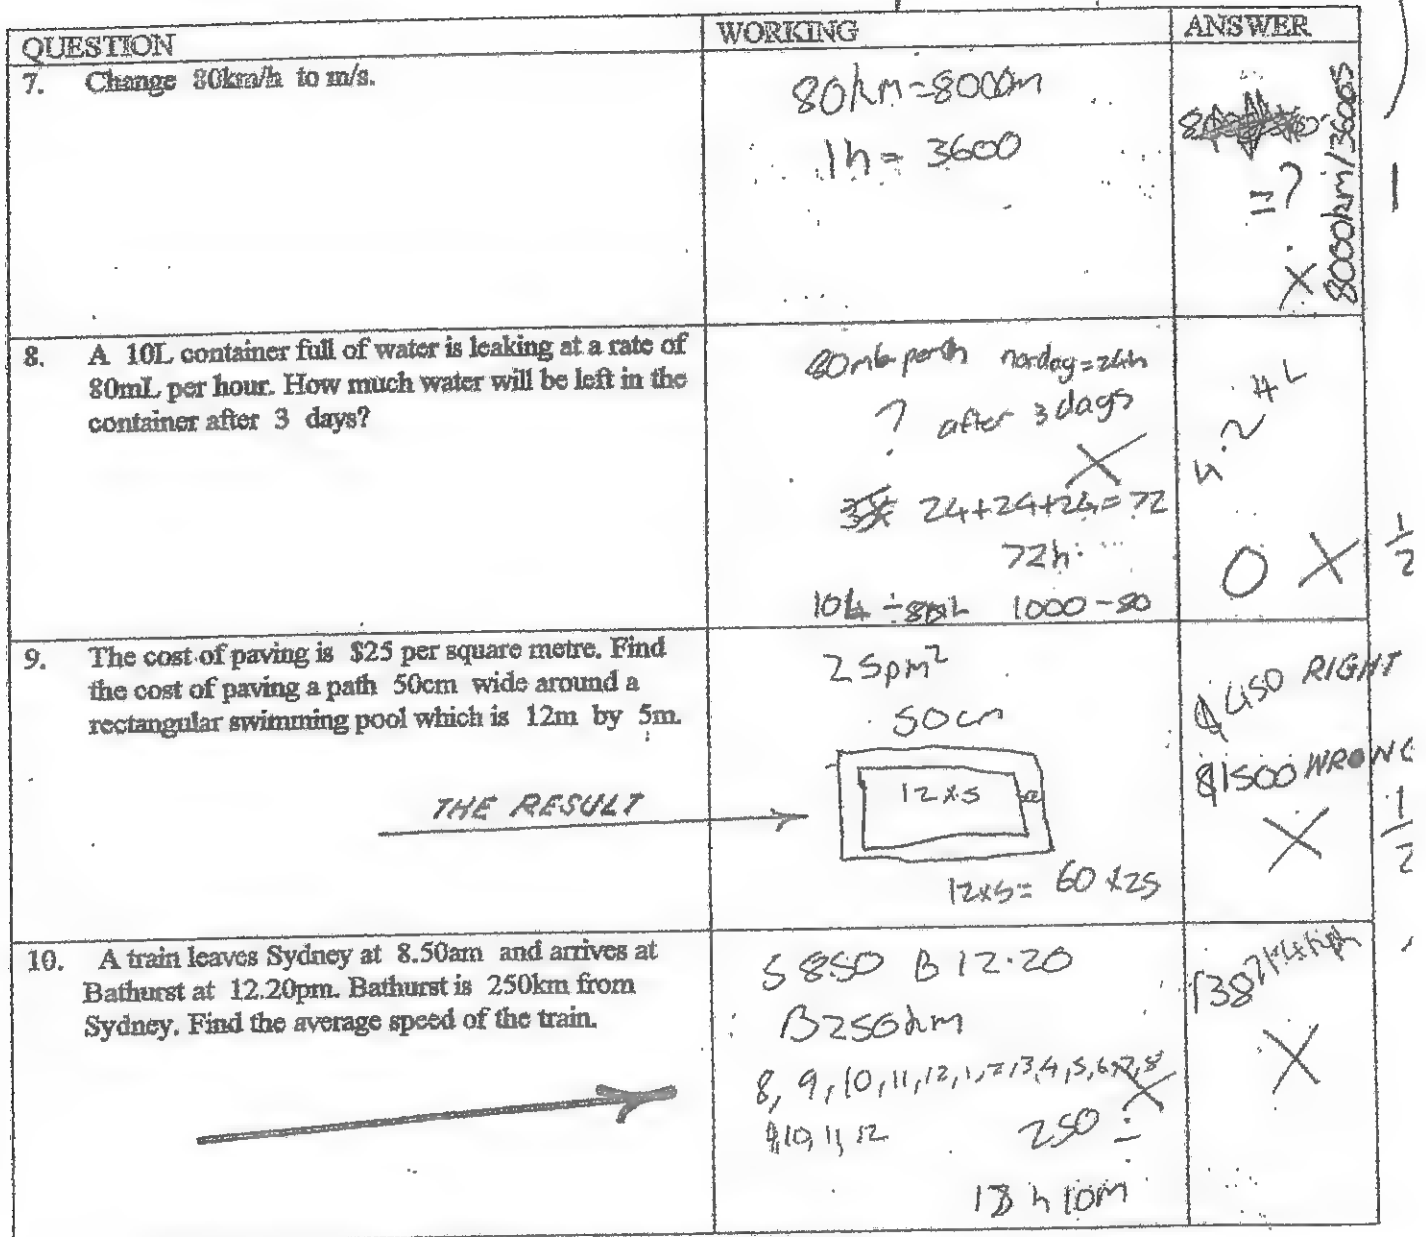 QUESTION
WORKING
ANSWER
7. Change 80km/h to m/s.
80km=8000m
1h = 3600
=?
8000km/3600s
X
1
8. A 10L container full of water is leaking at a rate of
80mL per hour. How much water will be left in the
container after 3 days?
80mL per h
day=24h
? after 3 days
X
24+24+24=72
72h
10L ÷ 80mL 1000-80
4.24L
0 X
1/2
9. The cost of paving is $25 per square metre. Find
the cost of paving a path 50cm wide around a
rectangular swimming pool which is 12m by 5m.
THE RESULT
25pm²
50cm
12x5
12x5= 60x25
$450 RIGHT
$1500 WRONG
X
1/2
10. A train leaves Sydney at 8.50am and arrives at
Bathurst at 12.20pm. Bathurst is 250km from
Sydney. Find the average speed of the train.
S 850 B 12.20
B250km
8, 9, 10, 11, 12, 1, 2, 3, 4, 5, 6, 7, 8
9, 10, 11, 12
X
250 ÷
h 10m
X